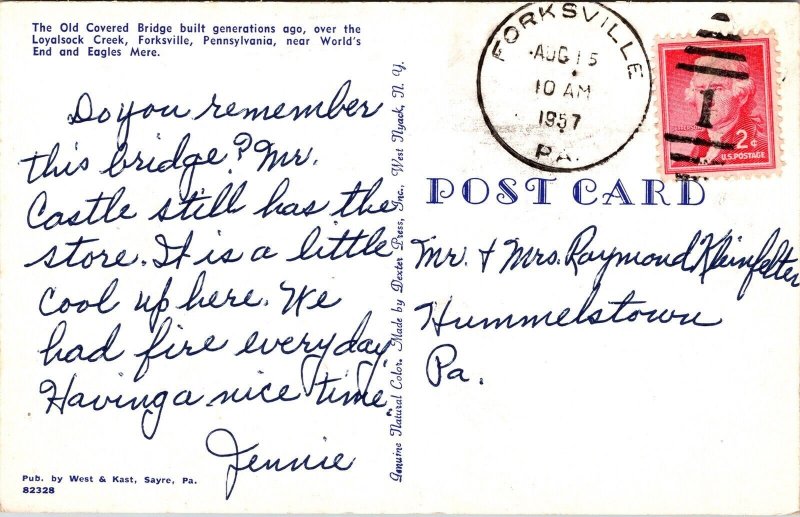 The Old Covered Bridge built generations ago, over the
Loyalsock Creek, Forksville, Pennsylvania, near World's
End and Eagles Mere.
Do you remember
this bridge? Mr.
Castle still has the
store. It is a little
cool up here. We
had fire every day.
Having a nice time.
Jennie
Pub. by West & Kast, Sayre, Pa.
82328
Genuine Natural Color. Made by Dexter Press, Inc., West Nyack, N. Y.
FORKSVILLE
AUG 15
10 AM
1957
PA.
1
JEFFERSON
2¢
U.S. POSTAGE
POST CARD
Mr. & Mrs. Raymond Kleinfelter
Hummelstown
Pa.